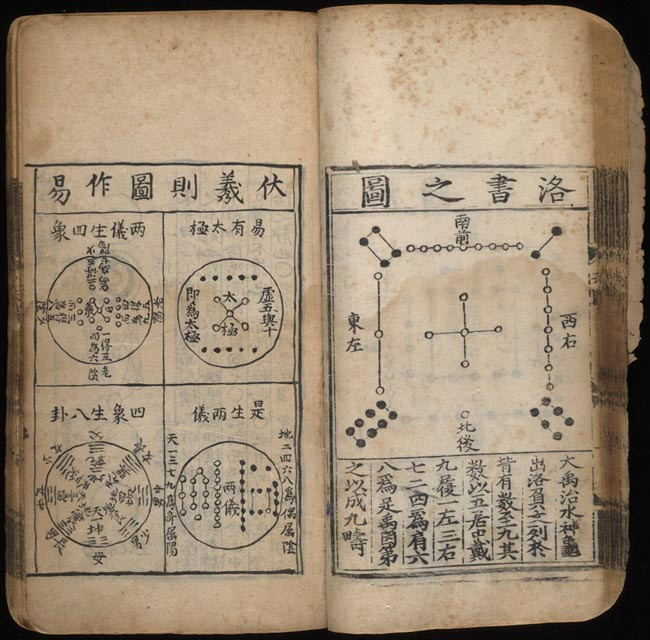 洛書之圖
南前
西右
東左
北後
大禹治水神龜
出洛負文列於
背有數至九其
數以五居中戴
九履一左三右
七二四爲肩六
八爲足禹因第
之以成九疇
伏羲則圖作易
易有太極
虛五與十
太極
即爲太極
兩儀生四象
一得五
而爲六
老
陰
是生兩儀
地二四六八爲偶屬陰
兩儀
天一三七九爲奇屬陽
四象生八卦
父
少男
坤
母